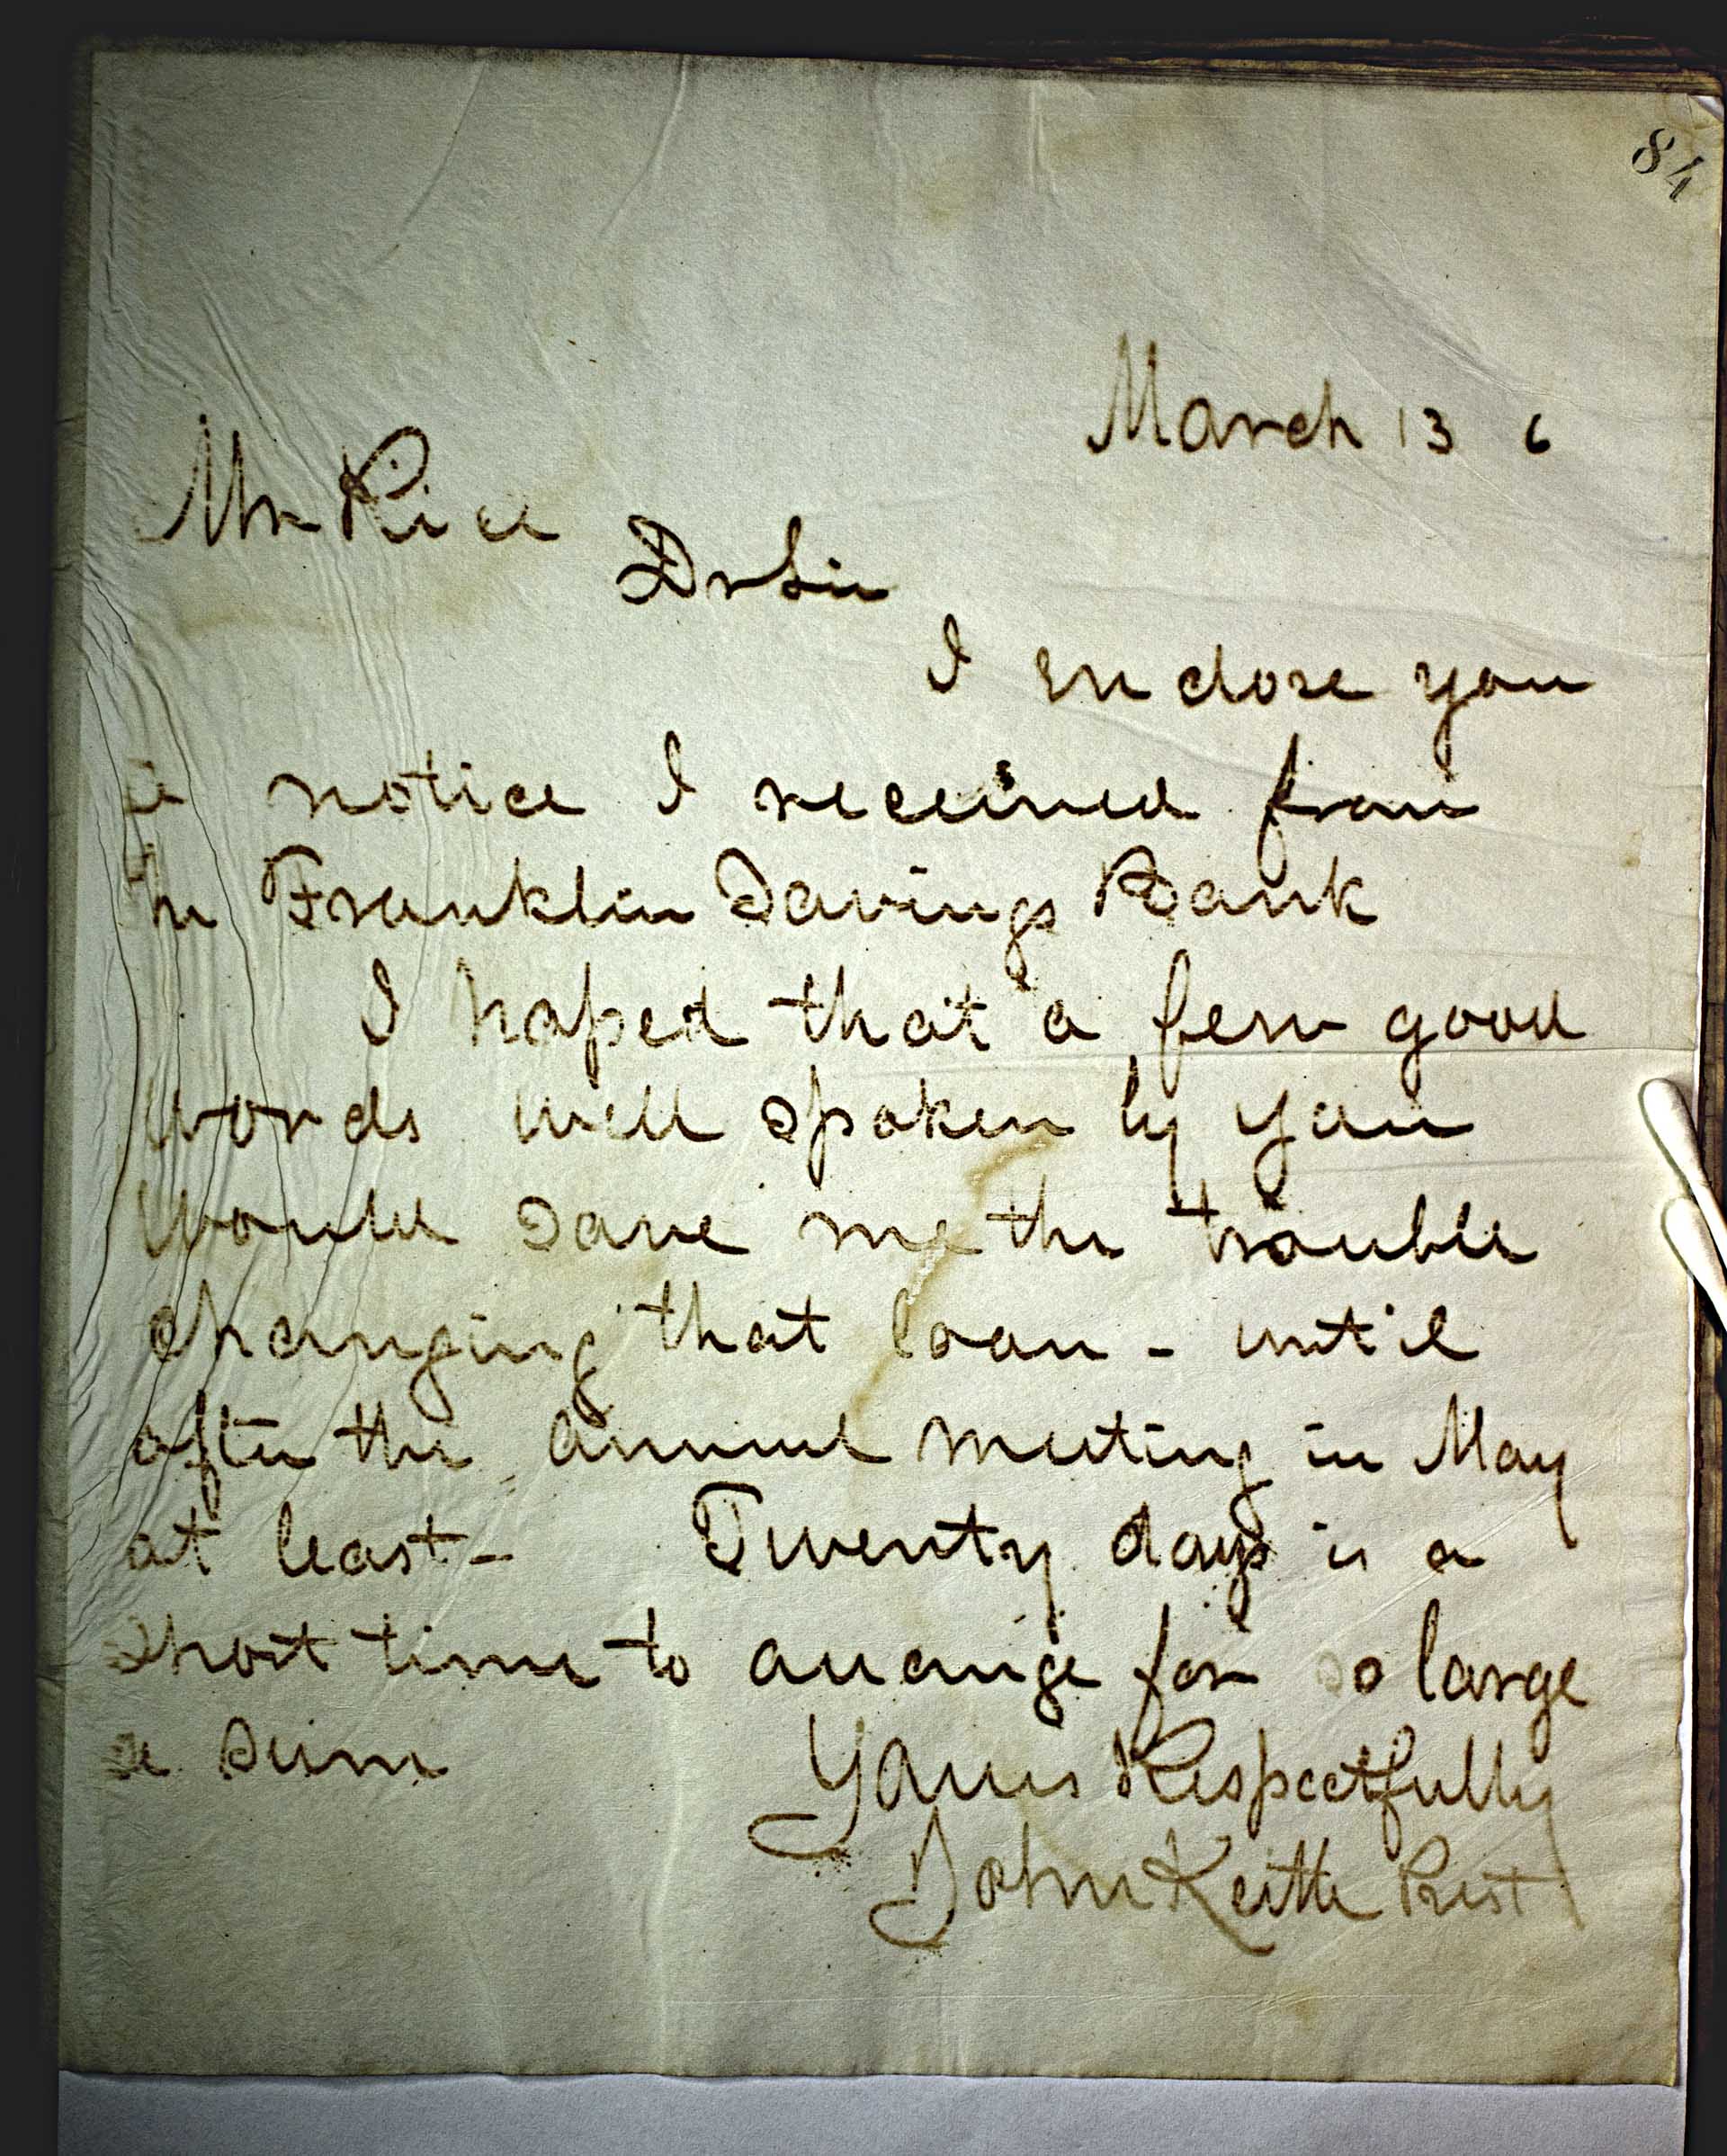 84
March 13 6
Mr Rice
Dr Sir
I enclose you
a notice I received from
the Franklin Savings Bank
I hoped that a few good
words well spoken by you
would save me the trouble
changing that loan - until
after the annual meeting in May
at least - Twenty days is a
short time to arrange for so large
a sum
Yours Respectfully
John Keith Prest